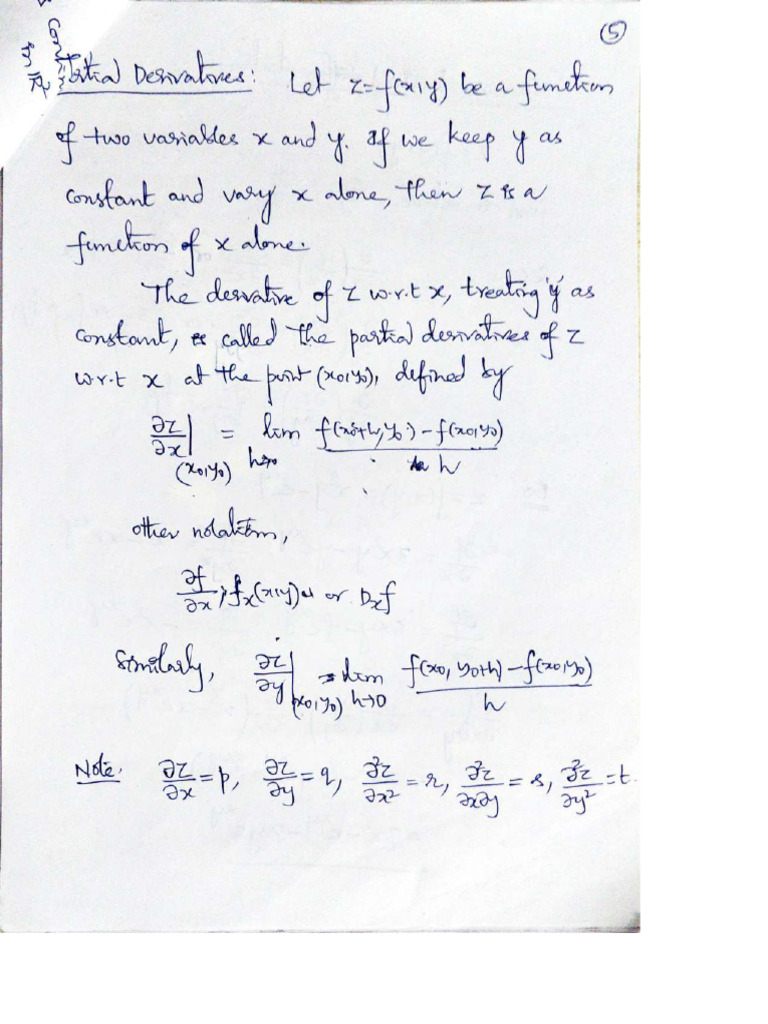 ⑤
Partial Derivatives: Let z=f(x,y) be a function
of two variables x and y. If we keep y as
constant and vary x alone, then z is a
function of x alone.
The derivative of z w.r.t x, treating 'y' as
constant, is called the partial derivatives of z
w.r.t x at the point (x₀,y₀), defined by
∂z/∂x|(x₀,y₀) = lim h→0 f(x₀+h,y₀)-f(x₀,y₀)/h
other notation,
∂f/∂x, fₓ(x,y) or Dₓf
Similarly, ∂z/∂y|(x₀,y₀) = lim h→0 f(x₀, y₀+h)-f(x₀,y₀)/h
Note: ∂z/∂x=p, ∂z/∂y=q, ∂²z/∂x²=r, ∂²z/∂x∂y=s, ∂²z/∂y²=t.